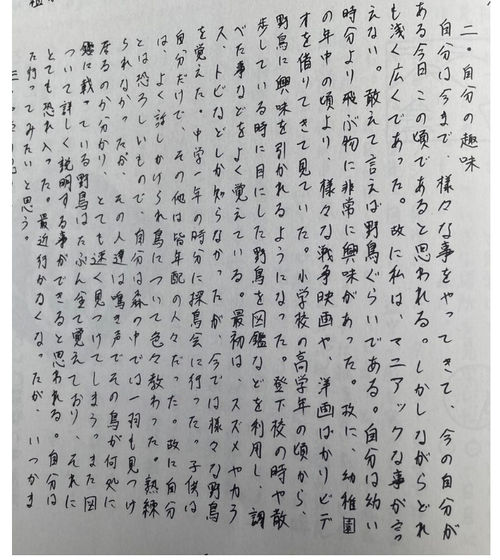 二．自分の趣味
自分は今まで、様々な事をやってきて、今の自分が
ある今日この頃であると思われる。しかしながらどれ
も浅く広くであった。故に私は、マニアックな事が言
えない。敢えて言えば野鳥ぐらいである。自分は幼い
時分より飛ぶ物に非常に興味があった。故に、幼稚園
の年中の頃より、様々な戦争映画や、洋画ばかりビデ
オを借りてきて見ていた。小学校の高学年の頃から、
野鳥に興味を引かれるようになった。登下校の時や散
歩している時に目にした野鳥を図鑑などを利用し、調
べた事などをよく覚えている。最初は、スズメやカラ
ス、トビなどしか知らなかったが、今では様々な野鳥
を覚えた。中学一年の時分に探鳥会に行った。子供は
自分だけで、その他は皆年配の人々だった。故に自分
は、よく話しかけられ鳥について色々教わった。熟練
とは恐ろしいもので、自分は森の中では一羽も見つけ
られなかったが、その人達は鳴き声でその鳥が何処に
居るのか分かり、とても速く見つけてしまう。また図
鑑に載っている野鳥はたぶん全て覚えており、それに
ついて詳しく説明する事ができると思われる。自分は
とても恐れ入った。最近行かなくなったが、いつかま
た行ってみたいと思う。